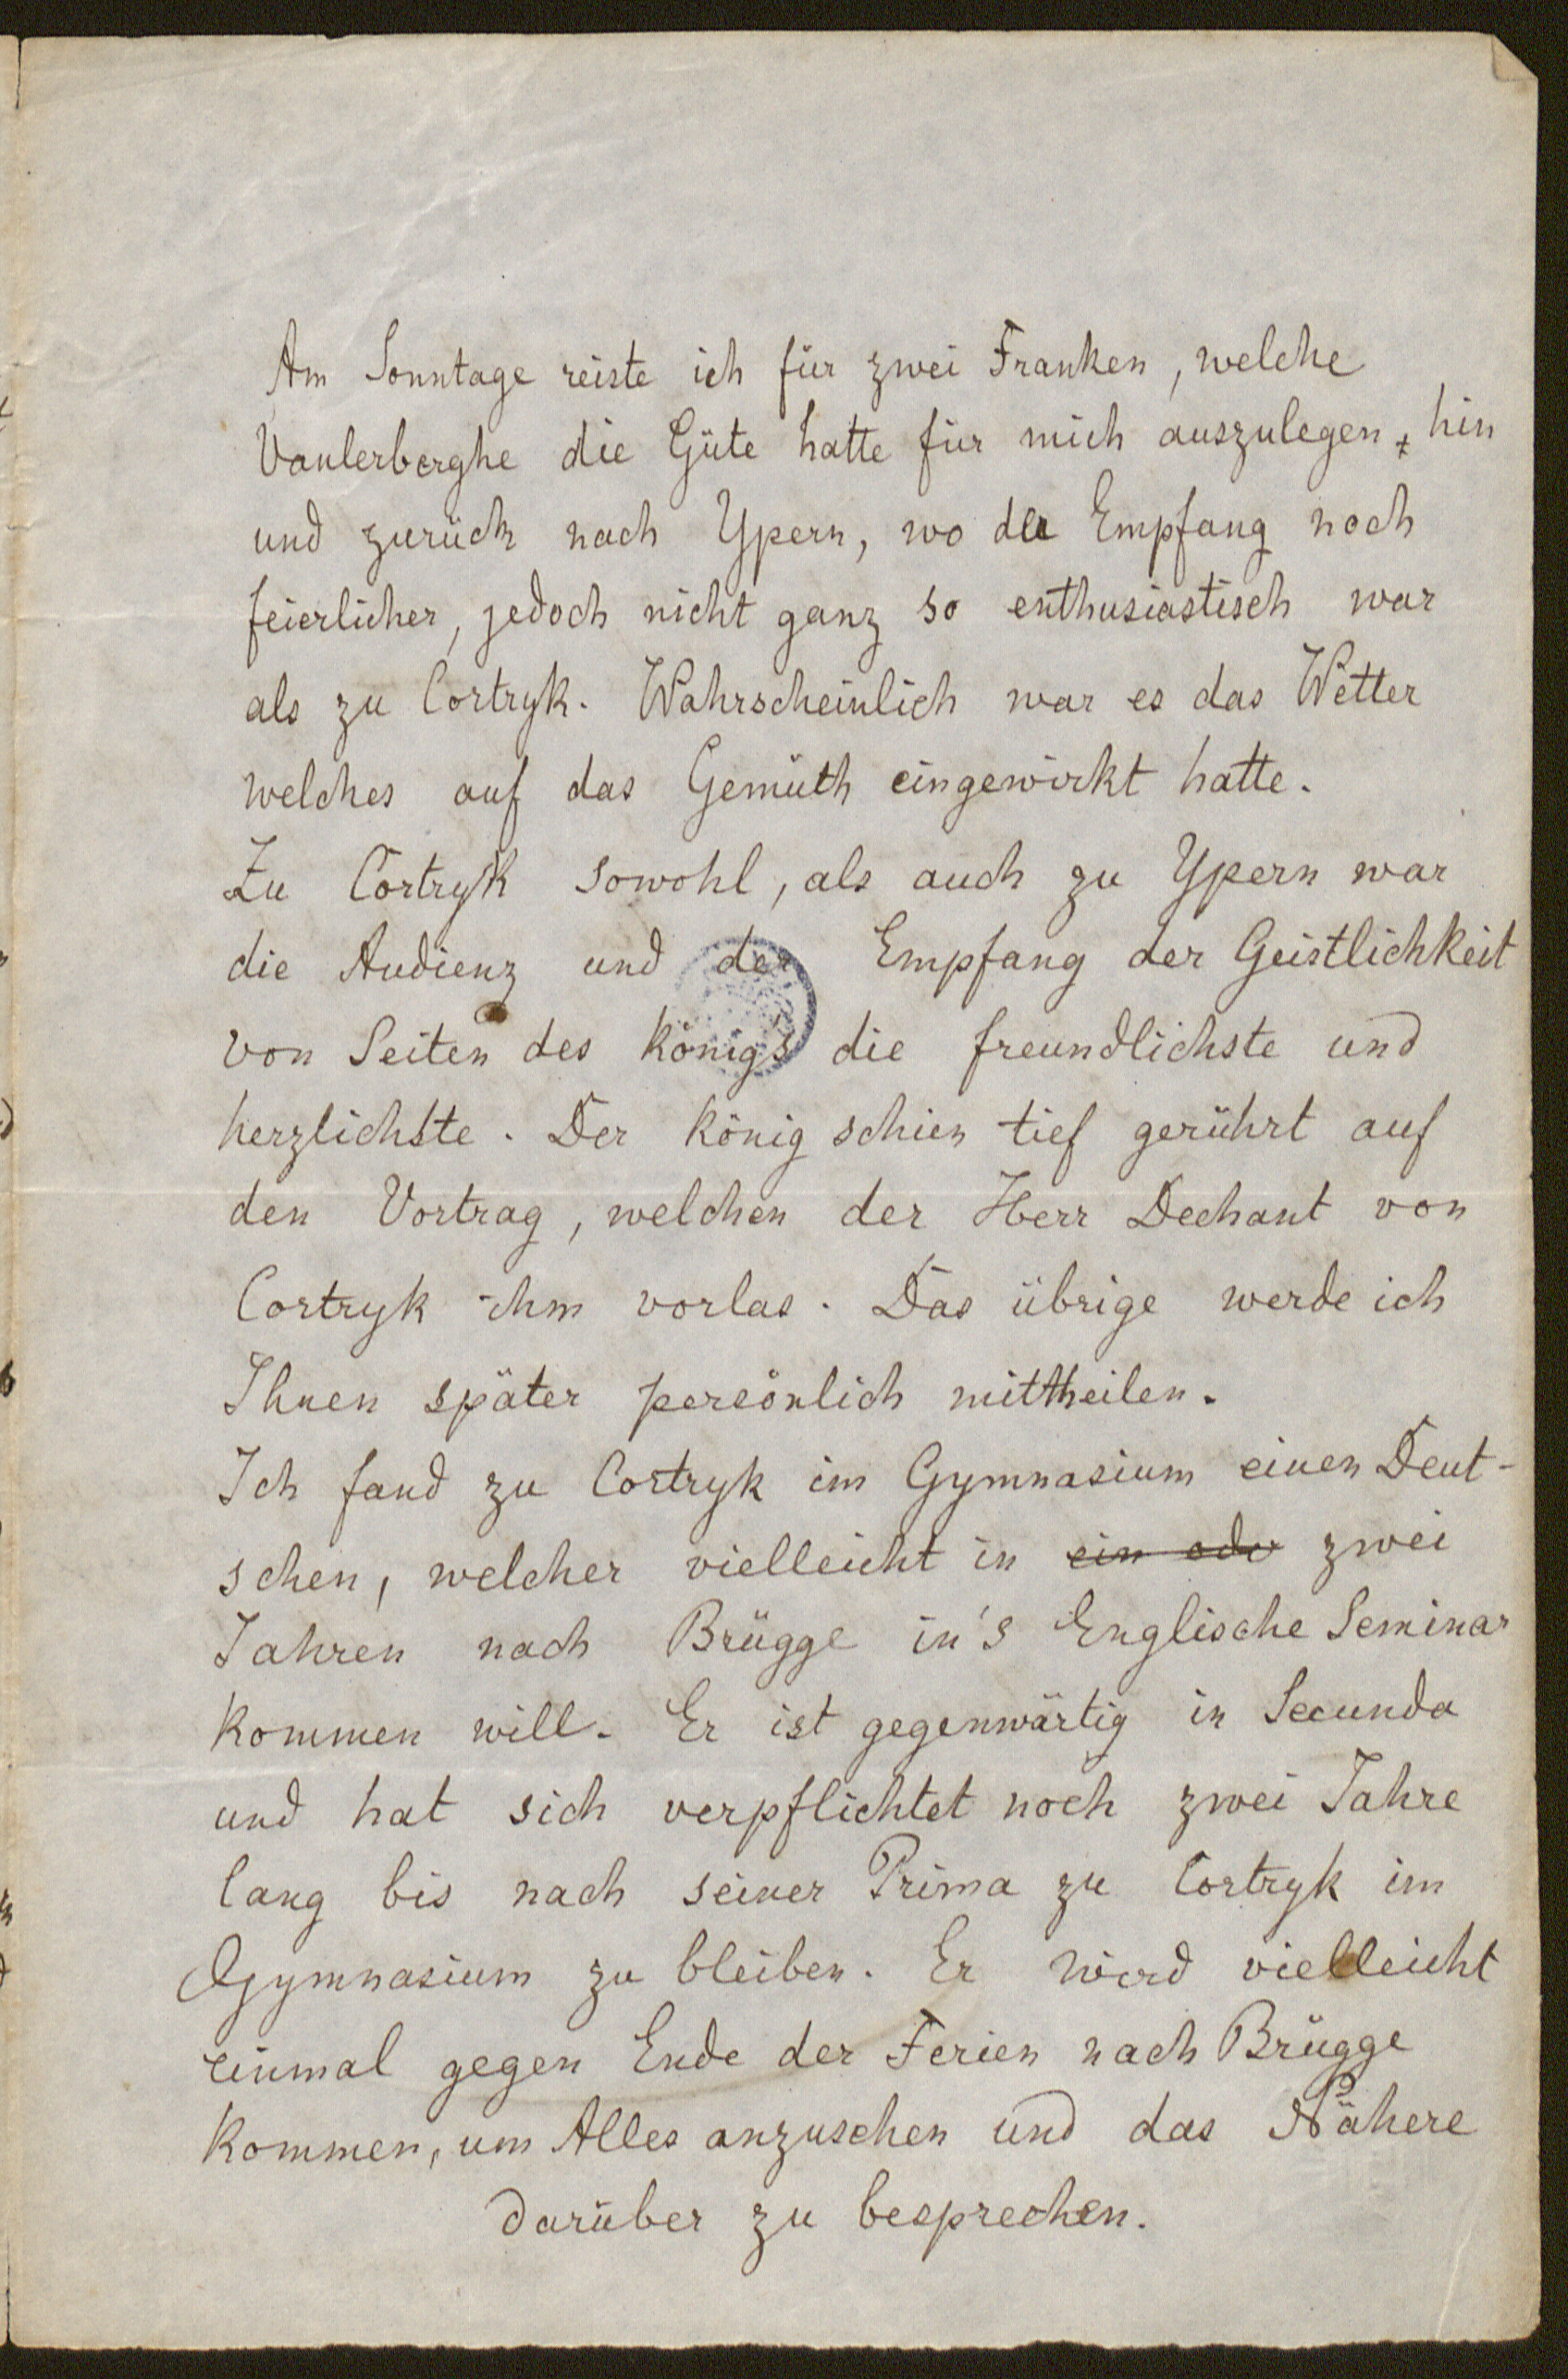 Am Sonntage reiste ich für zwei Franken, welche
Vanlerberghe die Güte hatte für mich auszulegen, hin
und zurück nach Ypern, wo der Empfang noch
feierlicher, jedoch nicht ganz so enthusiastisch war
als zu Cortryk. Wahrscheinlich war es das Wetter
welches auf das Gemüth eingewirkt hatte.
Zu Cortryk sowohl, als auch zu Ypern war
die Audienz und der Empfang der Geistlichkeit
von Seiten des König's die freundlichste und
herzlichste. Der König schien tief gerührt auf
den Vortrag, welchen der Herr Dechant von
Cortryk ihm vorlas. Das übrige werde ich
Ihnen später persönlich mittheilen.
Ich fand zu Cortryk im Gymnasium einen Deut-
schen, welcher vielleicht in ein oder zwei
Jahren nach Brügge in's Englische Seminar
kommen will. Er ist gegenwärtig in Secunda
und hat sich verpflichtet noch zwei Jahre
lang bis nach seiner Prima zu Cortryk im
Gymnasium zu bleiben. Er wird vielleicht
einmal gegen Ende der Ferien nach Brügge
kommen, um Alles anzusehen und das Nähere
darüber zu besprechen.